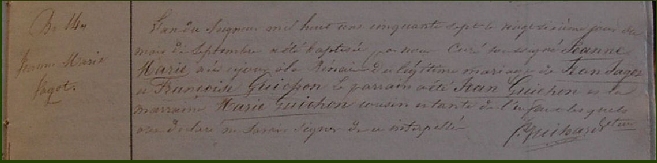 Be 16e
Jeanne Marie
Pagot.
L'an du Seigneur mil huit cent cinquante sept le vingt sixième jour du
mois de Septembre a été baptisée par nous Curé soussigné Jeanne
Marie née à la du légitime mariage de Jean Pagot
et Françoise Guichon le parrain a été Jean Guichon et la
marraine Marie Guichon cousin et tante de l'enfant lesquels
ont déclaré ne savoir signer de ce interpellés